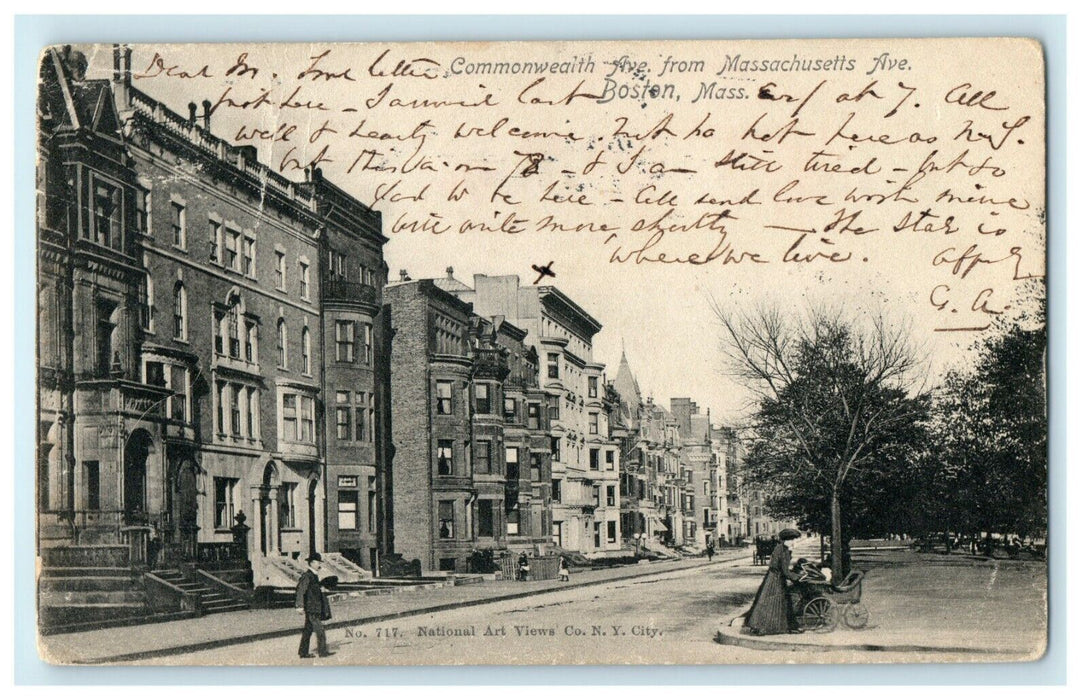 Commonwealth Ave. from Massachusetts Ave.
Boston, Mass.
Dear M. Your letter
just here – I arrived last at 7. All
well & hearty welcome. but
but this & I am still tired – but so
glad to be here – All send love with mine
will write more shortly – the star is
where we live.
G. A.
No. 717. National Art Views Co. N. Y. City.